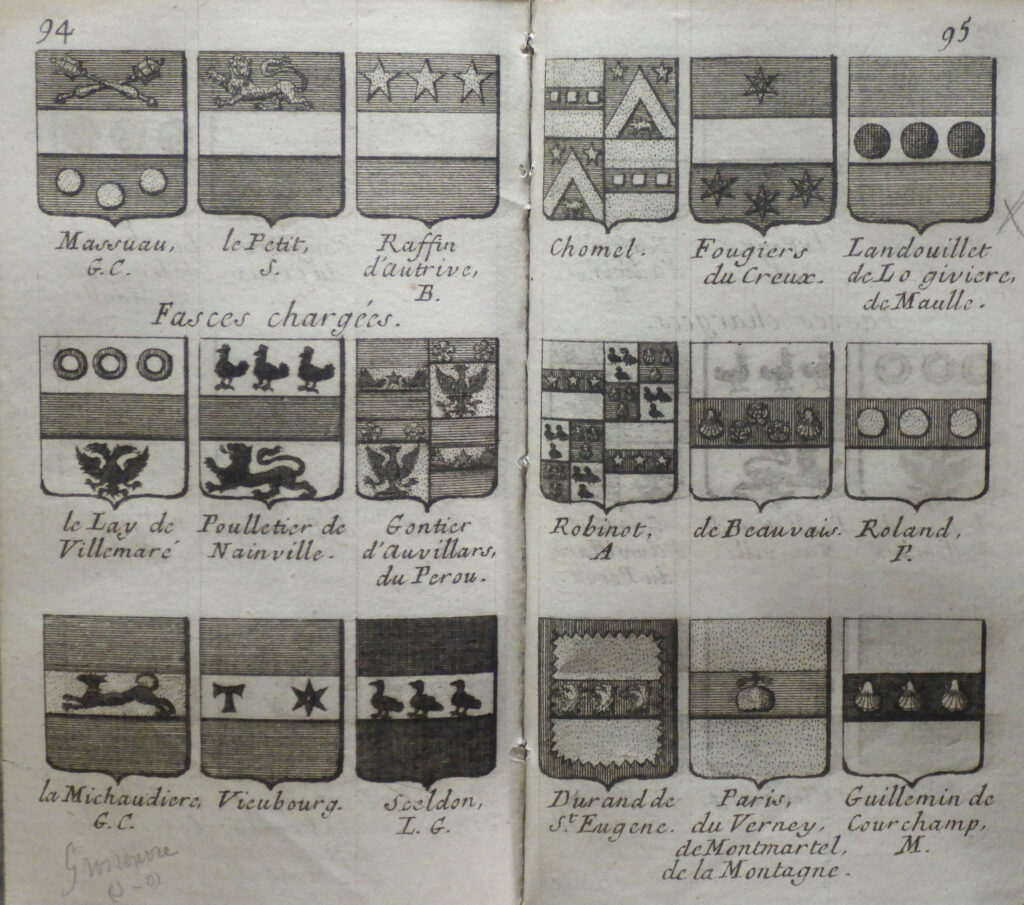 94
Massuau,
G.C.
le Petit,
S.
Raffin
d'autrive,
B.
Fasces chargées.
le Lay de
Villemaré
Poulletier de
Nainville.
Gontier
d'Auvillars,
du Perou.
la Michaudiere,
G.C.
Vieubourg.
Seeldon,
L.G.
95
Chomel.
Fougiers
du Creux.
Landouillet
de Lo giviere,
de Maulle.
Robinot,
A
de Beauvais.
Roland,
P.
Durand de
St. Eugene.
Paris,
du Verney,
de Montmartel,
de la Montagne.
Guillemin de
Courchamp,
M.